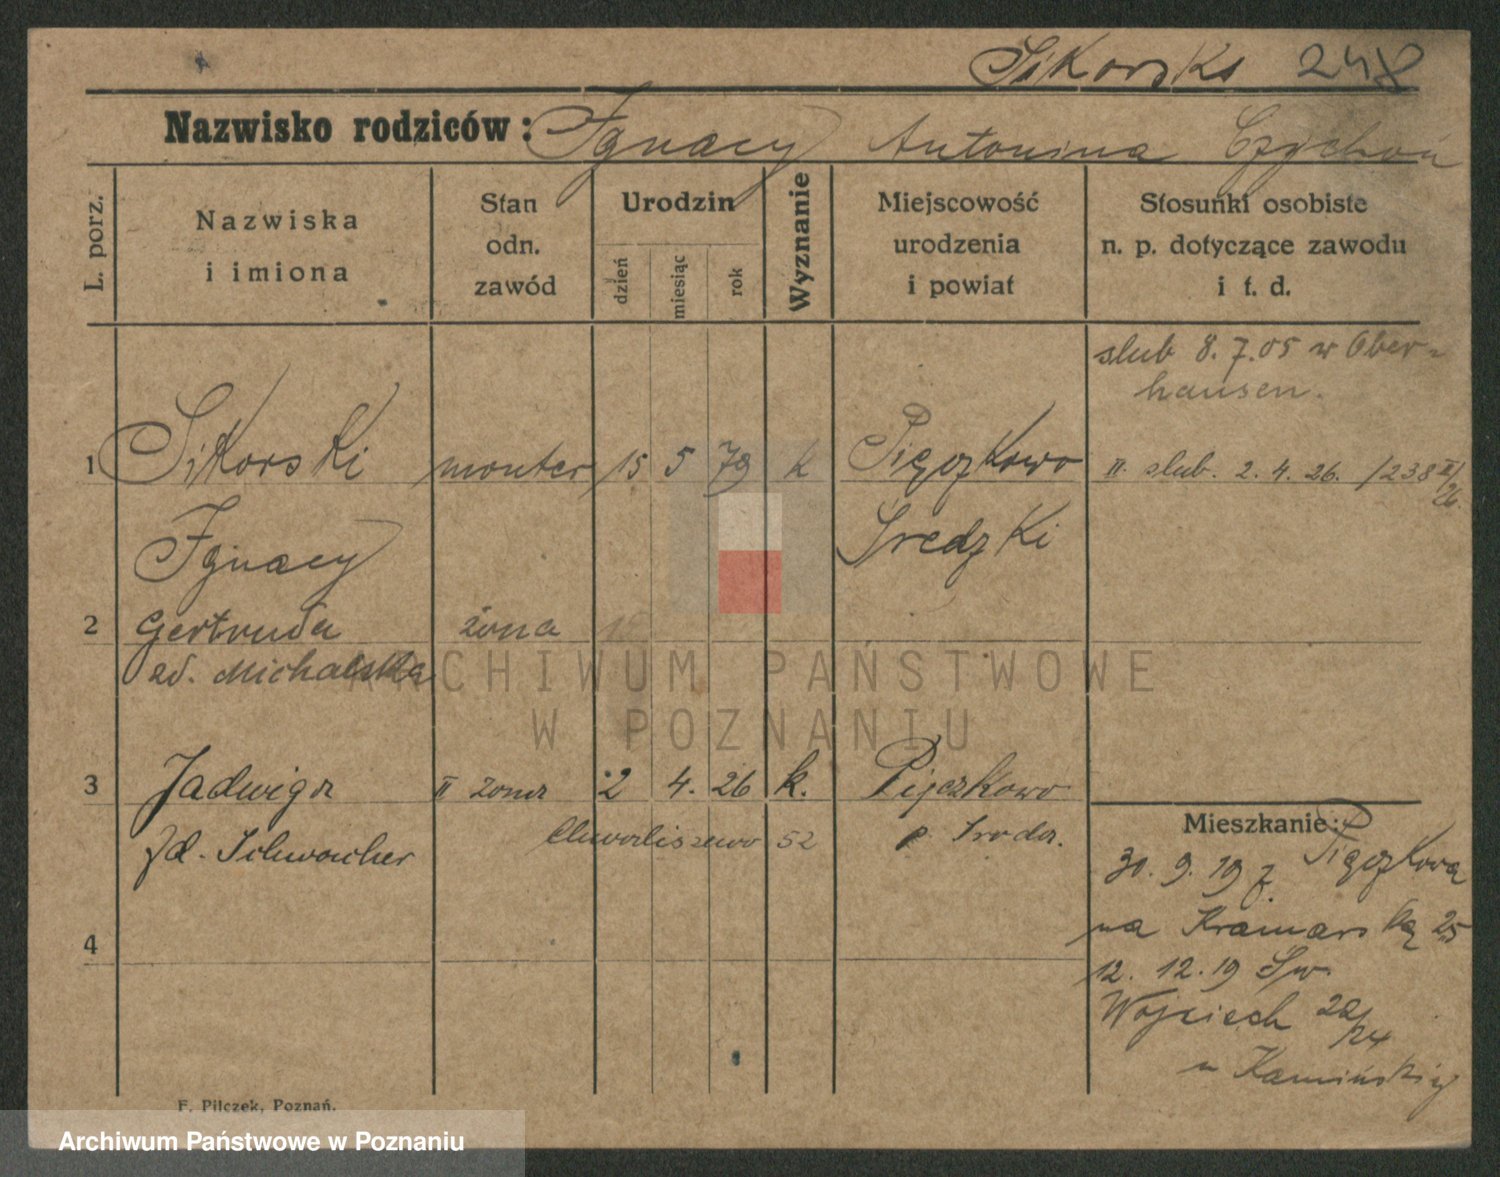 Sikorski 248
Nazwisko rodziców: Ignacy Antonina Czychoń
L. porz.
Nazwiska
i imiona
Stan
odn.
zawód
Urodzin
dzień
miesiąc
rok
Wyznanie
Miejscowość
urodzenia
i powiat
Stosunki osobiste
n. p. dotyczące zawodu
i t. d.
slub 8. 7. 05 w Ober-
hausen.
1 Sikorski monter 15 5 79 k Pięczkowo II. slub. 2. 4. 26. /238 II/26.
Ignacy Sredzki
2 Gertruda żona
zd. Michalska
ARCHIWUM PAŃSTWOWE
W POZNANIU
3 Jadwiga II żona 2 4. 26 k. Pięczkowo
zd. Schwacher Chwaliszewo 52 p. Sroda.
Mieszkanie:
30. 9. 19 z. Pięczkowa
na Kramarską 25
4
12. 12. 19 Sw.
Wojciech 28/24
u Kamińskiej
F. Pilczek, Poznań.
Archiwum Państwowe w Poznaniu